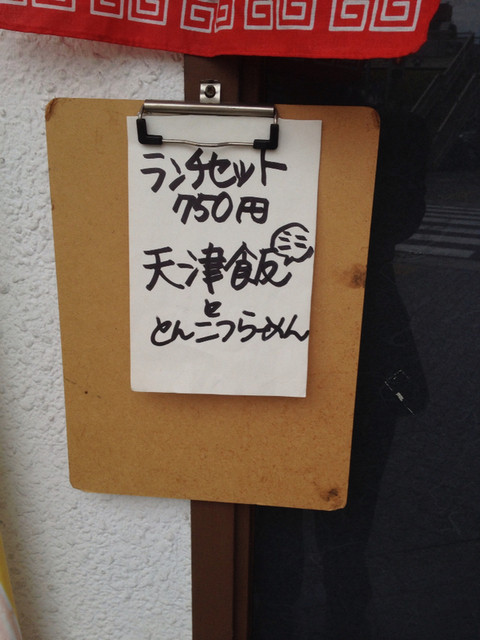 ランチセット
750円
ミニ
天津飯
と
とんこつらーめん